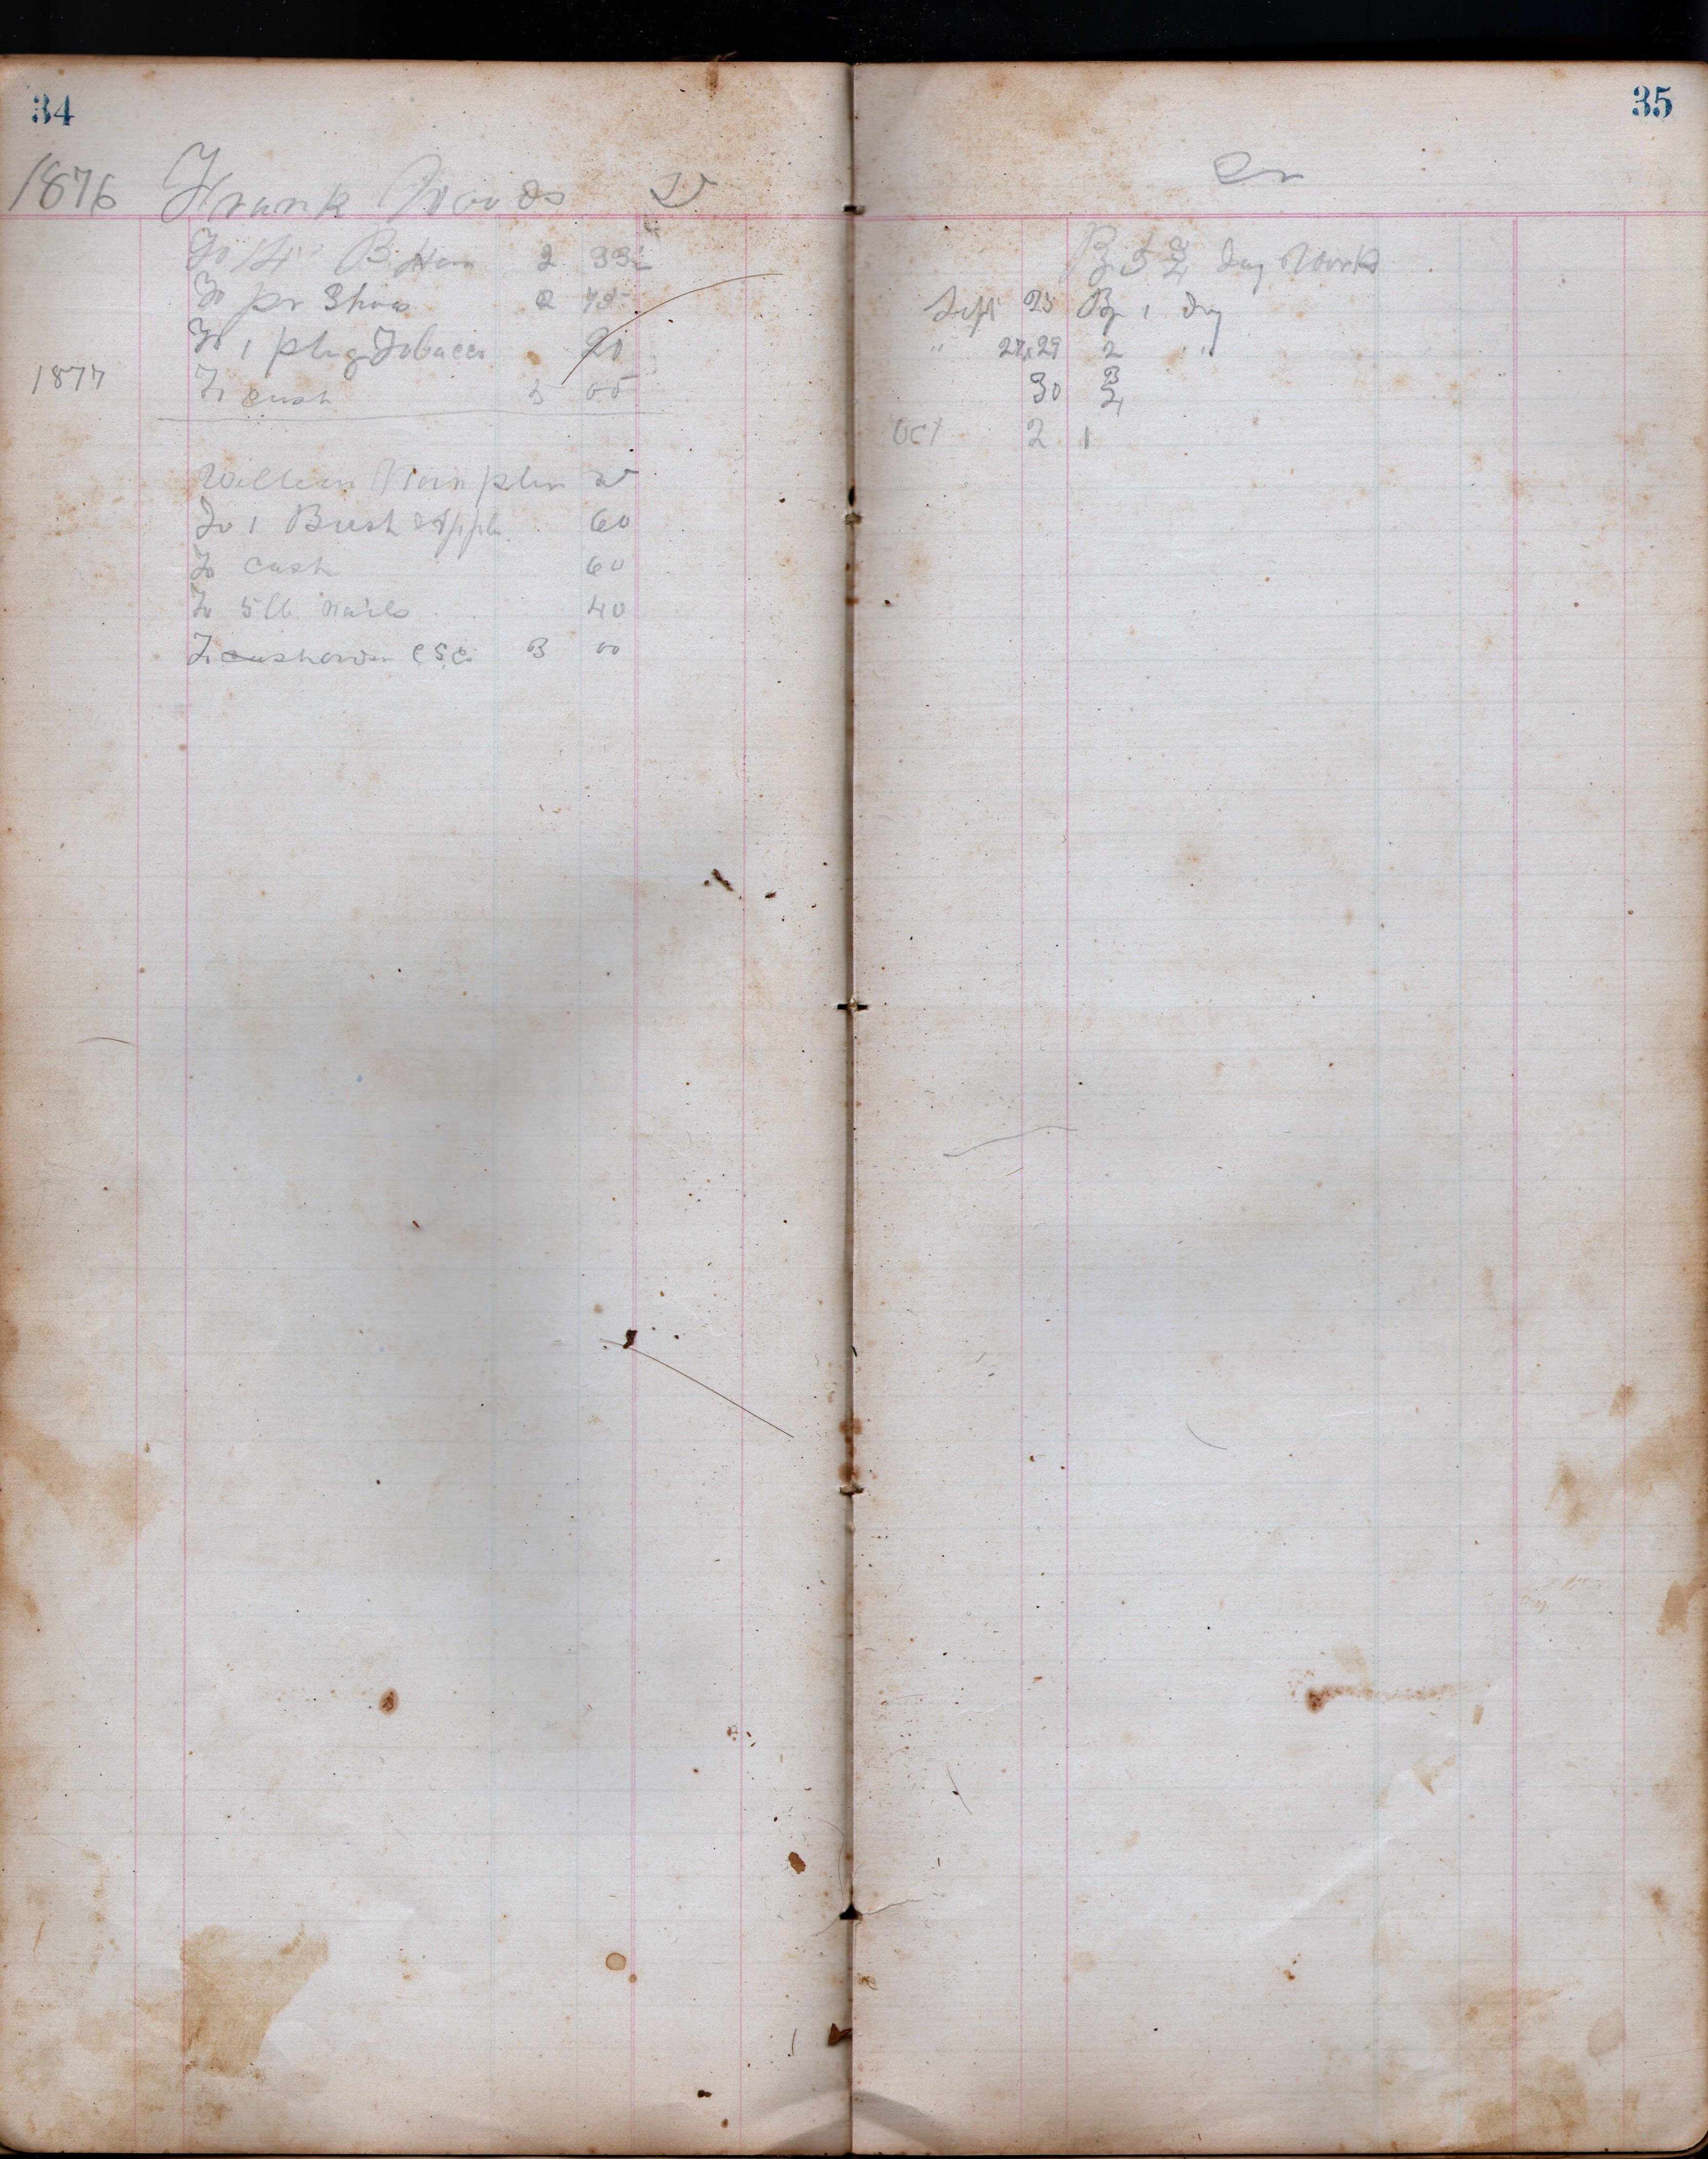 34
1876 Frank Woods Dr
To 14 lb B. Ham 2 33
To pr Shoes 2 75
To 1 plug Tobacco 20
1877 To cash 5 00
William Dr
To 1 Bush Apples 60
To cash 60
To 5 lb nails 40
To order 3 00
35
Cr
By 5 3/4 day Work
Sept 25 By 1 day
" 27, 29 2 "
30 3/4
Oct 2 1